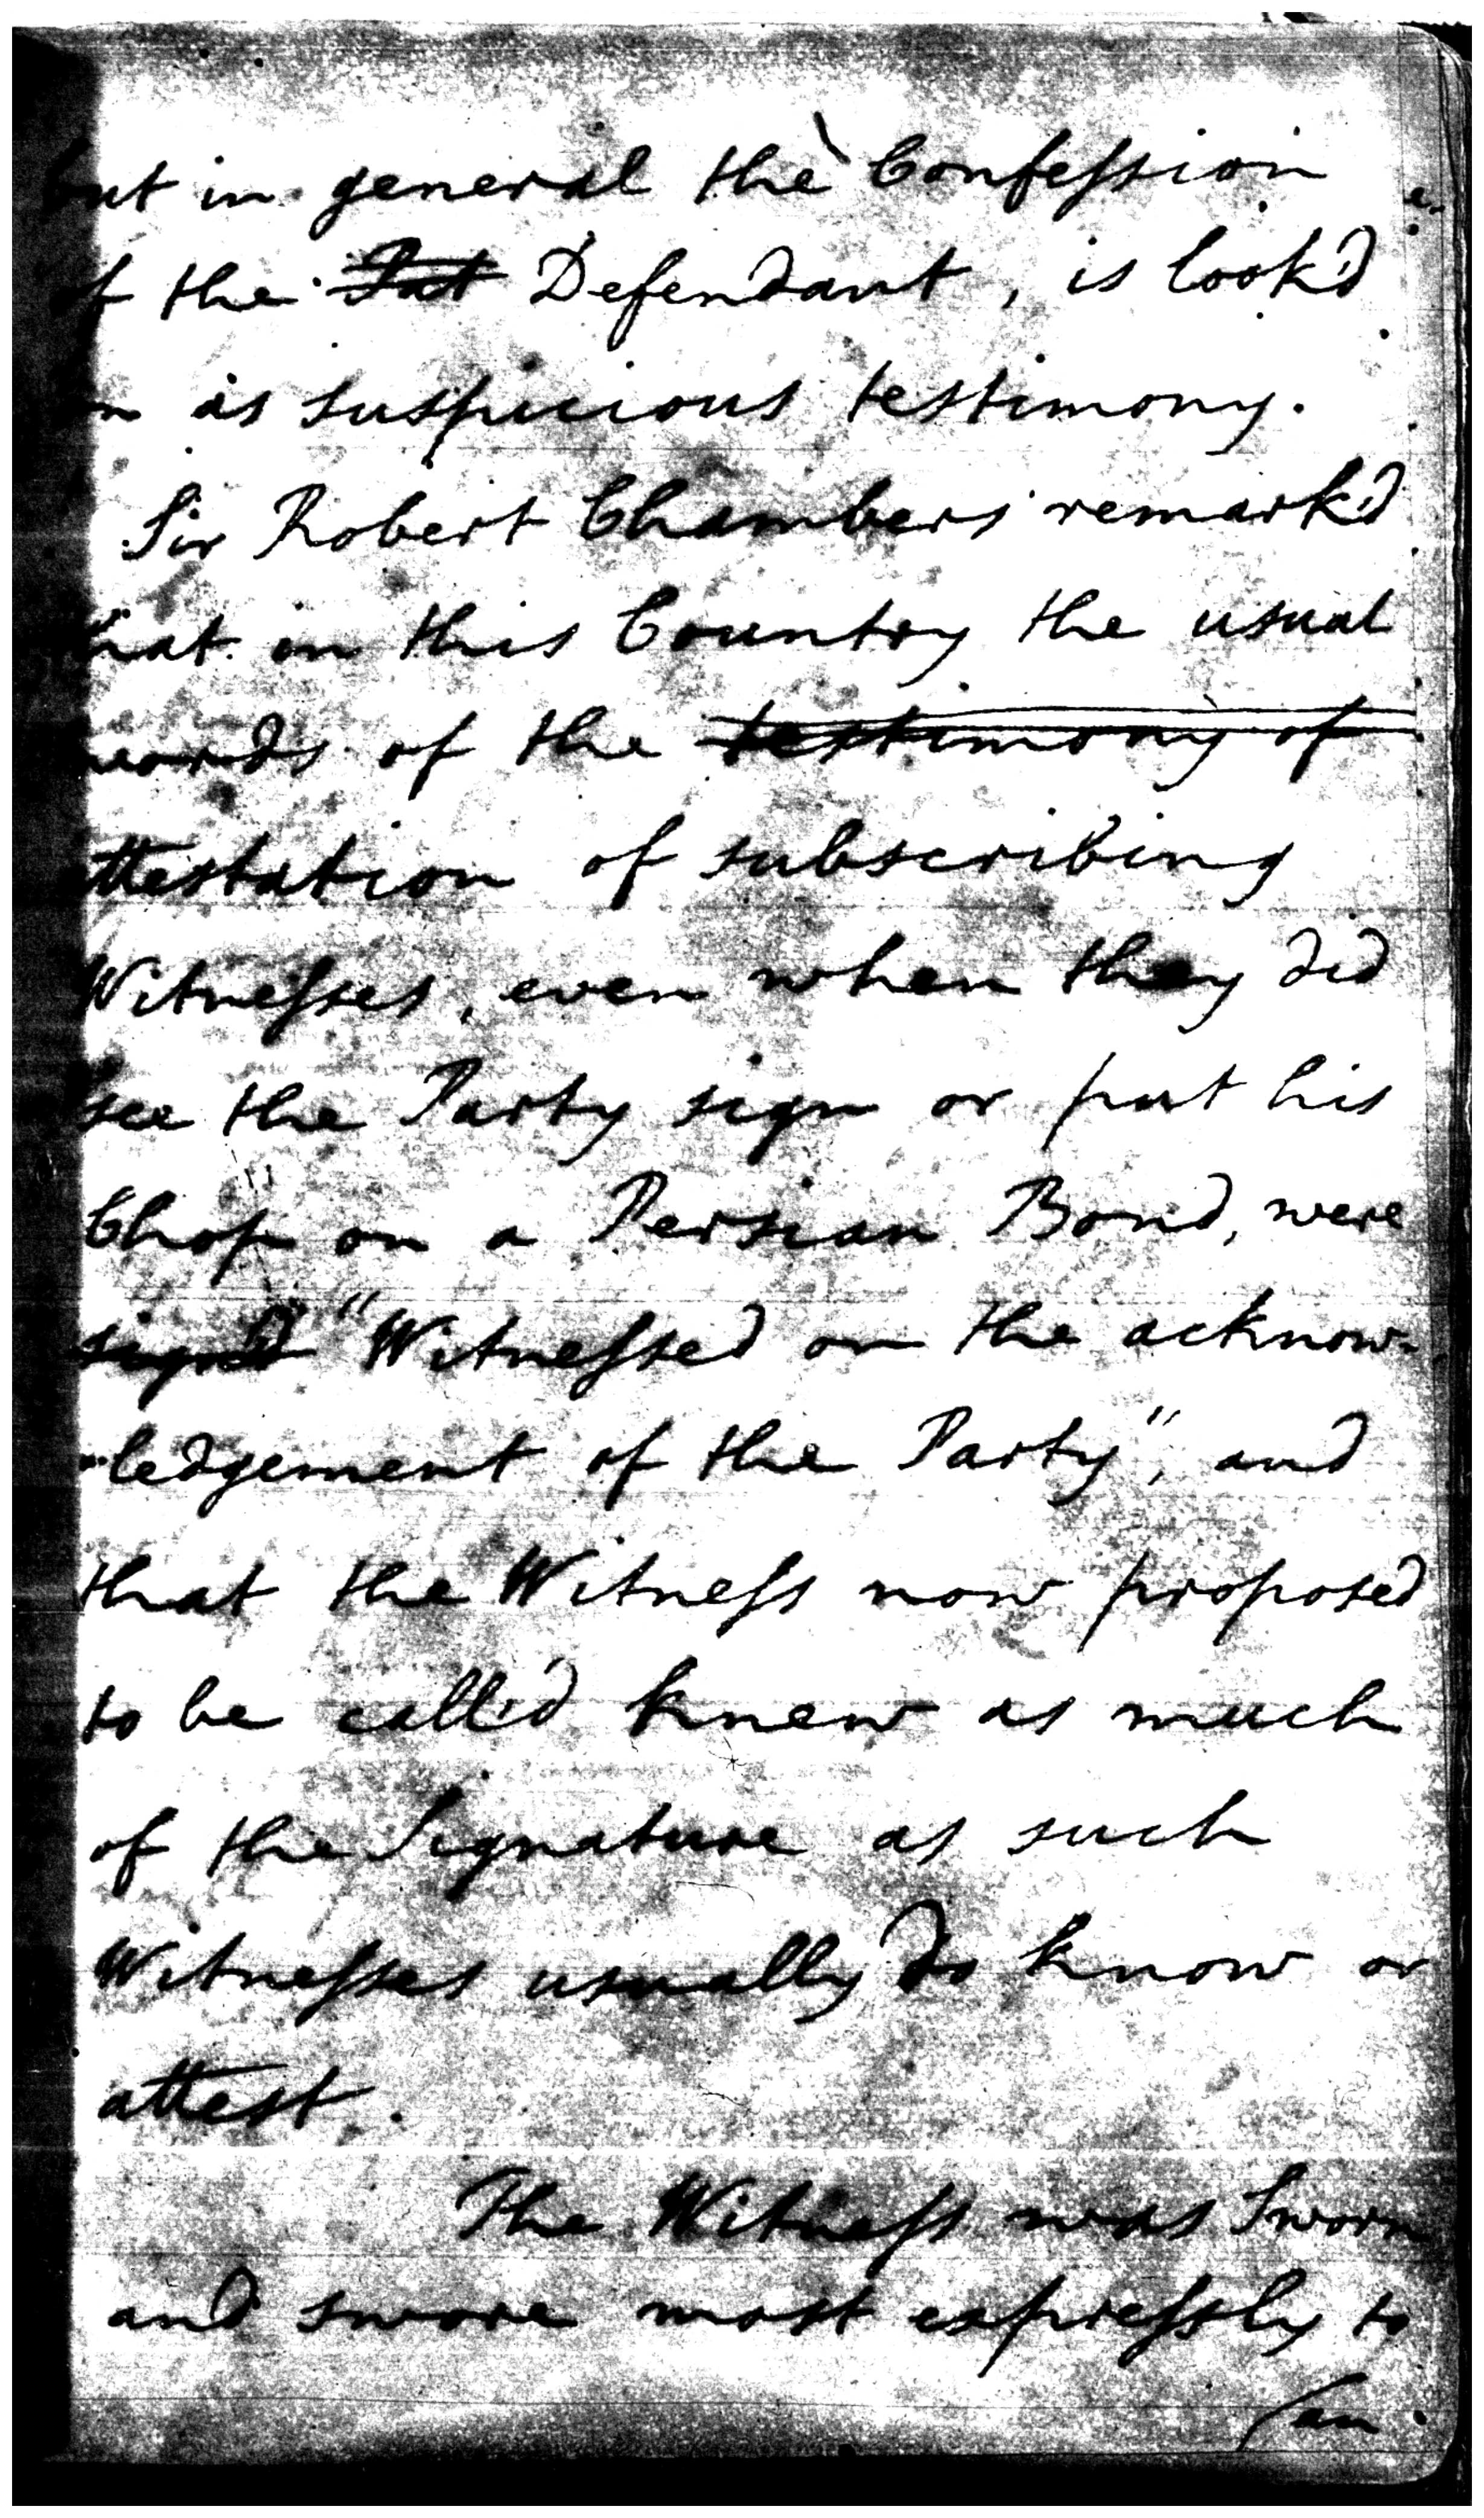 but in general the Confeſsion
of the Defendant, is look'd
on as suspicious testimony.
Sir Robert Chambers remark'd
that in this Country the usual
words of the testimony of
attestation of subscribing
Witneſses, even when they did
see the Party sign or put his
Chop on a Persian Bond, were
sign'd "Witneſsed on the acknow-
-ledgement of the Party", and
that the Witneſs now proposed
to be call'd knew as much
of the Signature as such
Witneſses usually do know or
attest.
The Witneſs was Sworn
and swore most expreſsly to
an